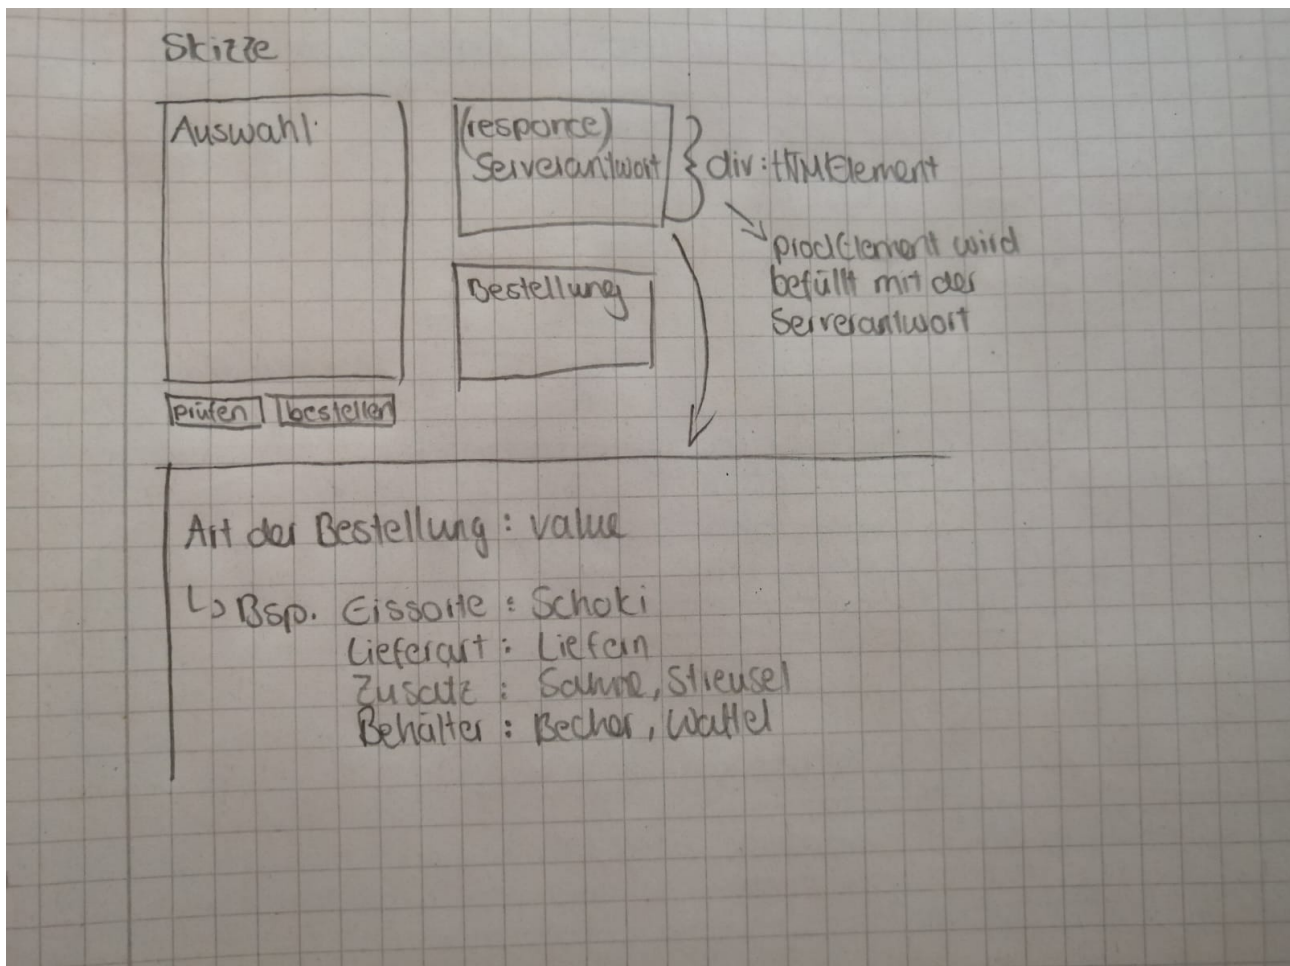 Skizze
Auswahl:
(responce)
Serverantwort
div: HTMLElement
prodElement wird
befüllt mit der
Serverantwort
Bestellung
prüfen
bestellen
Art der Bestellung: value
↳ Bsp. Eissorte: Schoki
Lieferart: Liefern
Zusatz: Sahne, Streusel
Behälter: Becher, Waffel